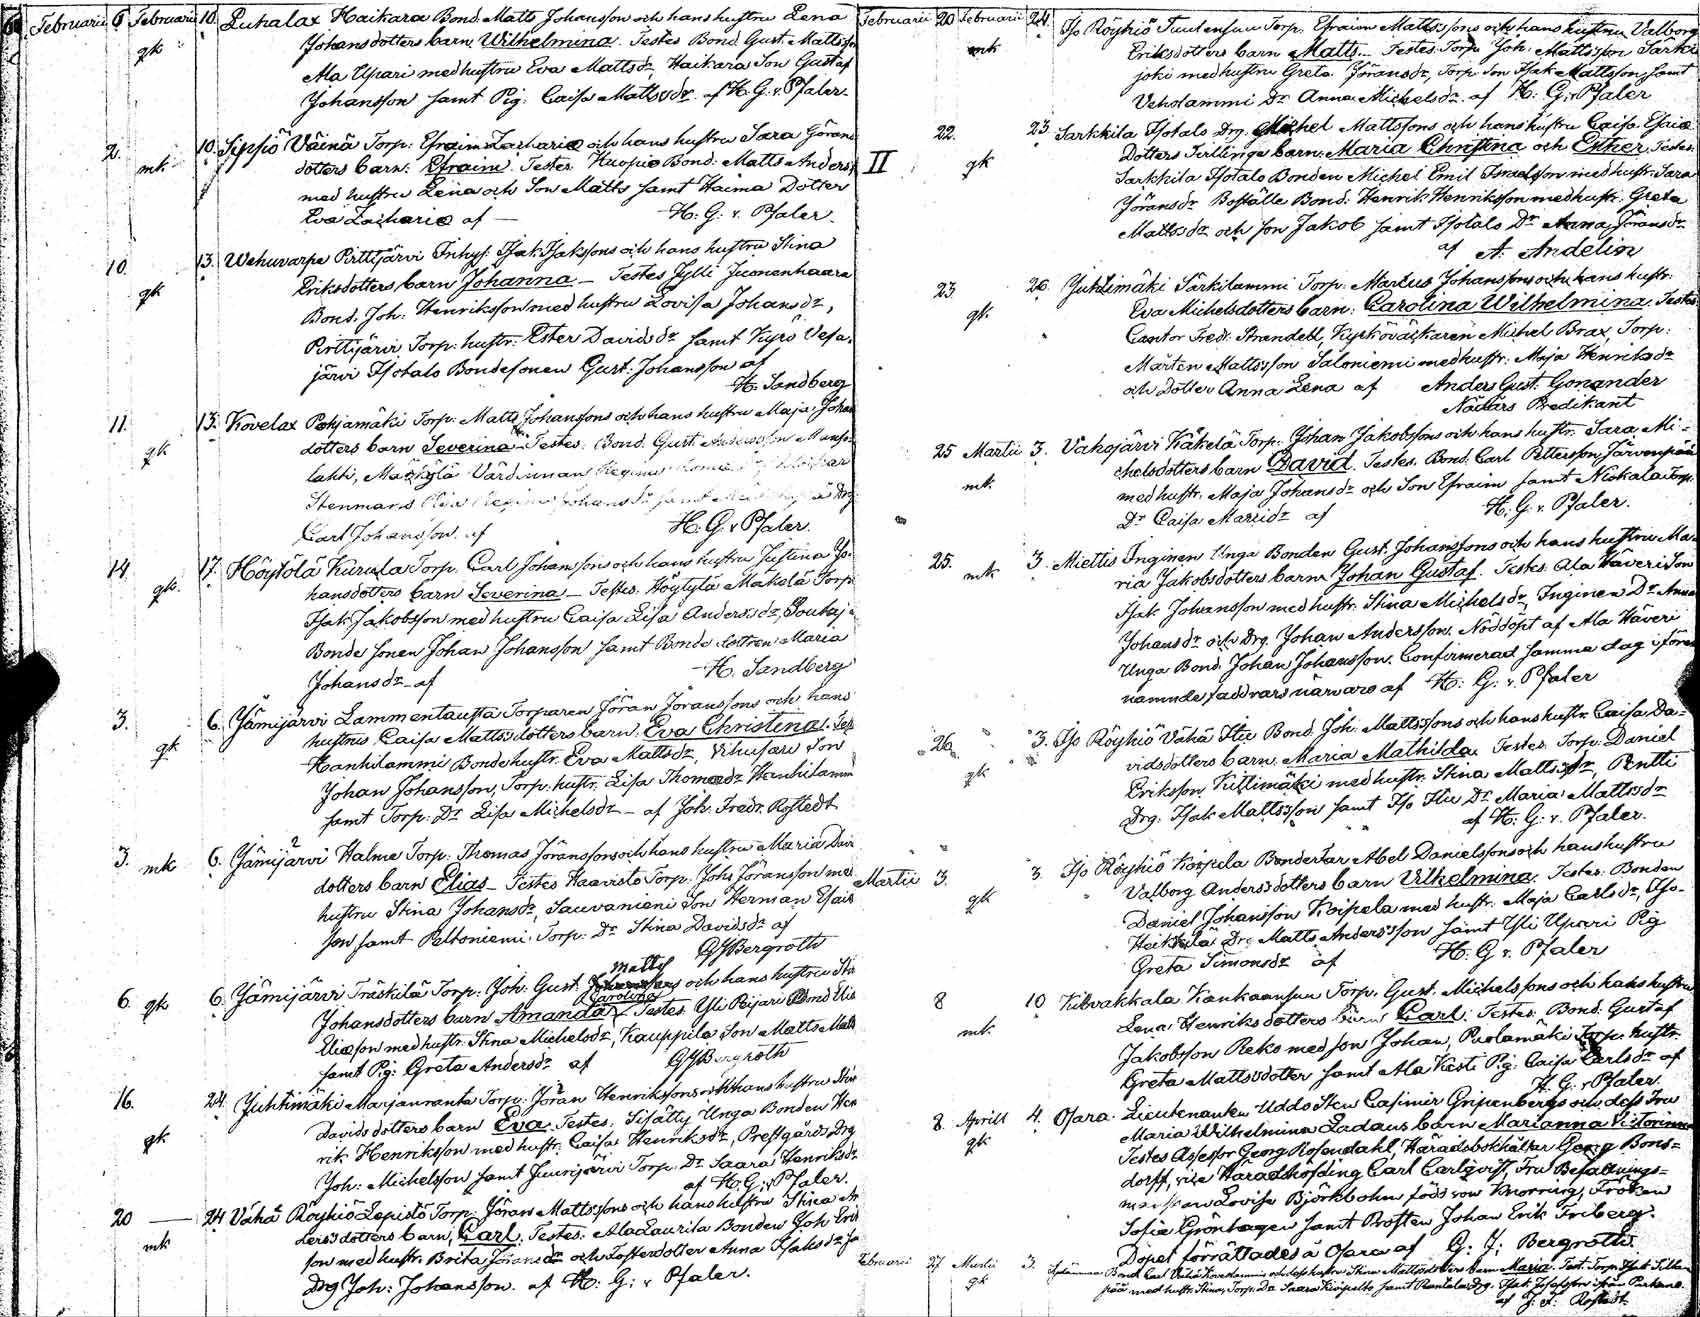 Februarii 6 Februarii 10. Luhalax Haikara Bond Matts Johansson och hans hustru Lena
gk Johansdotters barn, Wilhelmina. Testes Bond. Gust. Mattsson
Ala Upari med hustru Eva Mattsdr, Haikara Son Gustaf
Johansson samt Pig: Caisa Mattsdr. af H. G. v. Pfaler
2. 10. Sippiö Väinä Torp: Efraim Zachariæ och hans hustru Sara Göran
mk dotters barn: Efraim. Testes Kuopio Bond: Matts Anders
med hustru Lena och Son Matts samt Haima Dotter
Eva Zachariæ af — H. G. v. Pfaler.
10. 13. Wehuvarpe Pirttijärvi Inhys: Isak Isakssons och hans hustru Stina
gk Eriksdotters barn Johanna — Testes Jylli Juonenhaara
Bond. Joh: Henriksson med hustru Lovisa Johansdr,
Pirttijärvi Torp: hustr: Ester Davidsdr samt Kyrö Vesa-
järvi Isotalo Bondesonen Gust: Johansson af
H. Sandberg
11. 13. Kovelax Pohjamäki Torp: Matts Johanssons och hans hustru Maja Johan
gk dotters barn Severina Testes. Bond. Gust Andersson
lahti,
Stenmans Johansdr samt Drg
Carl Johansson. af H. G. v Pfaler.
14. 17. Höytölä Kurula Torp. Carl Johanssons och hans hustru Justina Jo-
gk hansdotters barn Severina — Testes. Höytylä Mäkelä Torp
Isak Jakobsson med hustru Caisa Lisa Andersdr,
Bonde sonen Johan Johansson samt Bonde dottren Maria
Johansdr — af H. Sandberg
3. 6. Jämijärvi Lammentausta Torparen Jöran Jöranssons och hans
gk hustrus Caisa Mattsdotters barn, Eva Christina.
Hanhilammi Bonde hustr. Eva Mattsdr, Vihusare Son
Johan Johansson, Torp: hustr. Lisa Thomædr Hanhilammi
samt Torp: Dr Lisa Michelsdr — af Joh. Fredr. Rostedt
3. mk 6. Jämijärvi Halme Torp: Thomas Jöranssons och hans hustru Maria Davi
dotters barn Elias — Testes Haavisto Torp: Johs Jöransson med
hustru Stina Johansdr, Sauvaniemi Son Herman Esais
son samt Peltoniemi Torp: Dr Stina Davidsdr af
G J Bergroth
Matts
6. gk 6. Jämijärvi Träskilä Torp: Joh: Gust. och hans hustru Sti
Carolina
Johansdotters barn Amanda Testes Yli Peijari Bond Elis
Eliæson med hustr: Stina Michelsdr, Kauppila Son Matts Matts
samt Pig: Greta Andersdr af G J Bergroth
16. 24. Juhtimäki Marjanranta Torp: Jöran Henrikssons och hans hustru Stin
gk Davidsdotters barn Eva. Testes: Sisätty Unga Bonden Hen
rik Henriksson med hustr: Caisa Henriksdr, Prestgårds Drg
Joh: Michelsson samt Juurijärvi Torp: Dr Saara Henriksdr
af H. G. v Pfaler.
20 — 24 Vähä Röyhiö Lepistö Torp: Jöran Mattssons och hans hustru Stina An
mk dersdotters barn, Carl. Testes: Ala Laurila Bonden Joh Erik
son med hustr. Brita Jöransdr och Fosterdotter Anna Isaksdr Ja
Drg Joh: Johansson. af H. G. v Pfaler.
Februarii 20 Februarii 24. Iso Röyhiö Tuulensuu Torp. Efraim Mattssons och hans hustru Valborg
mk Eriksdotters barn Matts — Testes: Torp. Joh: Mattsson Särki
joki med hustru Greta Jöransdr, Torp: Son Isak Mattsson, samt
Veholammi Dr Anna Michelsdr. af H. G. v Pfaler
22. 23 Sarkkila Isotalo Drg. Michel Mattssons och hans hustru Caisa Esaiæ
II gk Dotters Tvillinga barn: Maria Christina och Esther. Testes:
Sarkkila Isotalo Bonden Michel Emil Israelsson med hustr. Sara
Jöransdr Boställe Bond. Henrik Henriksson med hustr. Greta
Mattsdr och Son Jakob samt Isotalo Dr Anna Jöransdr
af A. Andelin
23. 26 Juhtimäki Särkilammi Torp. Marcus Johanssons och hans hustr.
gk. Eva Michelsdotters barn: Carolina Wilhelmina. Testes
Cantor Fredr. Arandell, Kyrkoväktaren Michel Brax, Torp:
Mårten Mattsson Saloniemi med hustr: Maja Henriksdr
och dotter Anna Lena af Anders Gust. Gonander
Nådårs Predikant
25 Martii 3. Vahojärvi Käkelä Torp: Johan Jakobssons och hans hustr. Sara Mi-
mk. chelsdotters barn David. Testes. Bond. Carl Pettersson Järvenpää
med hustr. Maja Johansdr och Son Efraim samt Niskala Torp.
Dr Caisa Marcidr af H. G. v. Pfaler.
25. mk 3. Miettis Inginen Unga Bonden Gust. Johanssons och hans hustru Ma-
ria Jakobsdotters barn Johan Gustaf. Testes. Ala Häveri Son
Isak Johansson med hustr. Stina Michelsdr, Inginen Dr Anna
Johansdr och Drg. Johan Andersson. Nöddöpt af Ala Häveri
Unga Bond. Johan Johansson. Confirmerad samma dag i före
nämnde faddrars närvaro af H. G. v Pfaler
26. 3. Iso Röyhiö Vähä Iso Bond. Joh: Mattssons och hans hustr. Caisa Da-
gk vidsdotters barn. Maria Mathilda. Testes. Torp. Daniel
Eriksson, Kittimäki med hustr. Stina Mattsdr, Pentti
Drg. Isak Mattsson samt Iso Dr Maria Mattsdr
af H. G. v. Pfaler.
Martii 3. 3. Iso Röyhiö Koipela Bonden Abel Danielssons och hans hustru
gk Valborg Andersdotters barn Vilhelmina. Testes. Bonden
Daniel Johansson Koipela med hustr. Maja Carlsdr, Iso-
Heikkilä Drg. Matts Andersson samt Yli Upari Pig
Greta Simonsdr af H. G v. Pfaler
8 10 Kihvakkala Kankaansuu Torp. Gust. Michelssons och hans hustru
mk. Lena Henriksdotters barn Carl. Testes. Bond. Gustaf
Jakobsson Reko med son Johan, Puolamäki Torp. hustr.
Greta Mattsdotter samt Ala Kesti Pig: Caisa Carlsdr af
H. G. v Pfaler.
8. Aprill 4. Osara. Lieutenanten Uddo Sten Casimir Gripenbergs och dess Fru
gk Maria Wilhelmina Ladaus barn Marianna Victorinna
Testes Assessor Georg Rosendahl, Häradsbokhållar Georg Bons-
dorff, vice Häradshöfding Carl Carlqvist, Fru Befallnings-
Lovisa Björkbohm född von Knorring, Fröken
Sofia Grönhagen samt Prosten Johan Erik Friberg.
Dopet förrättades å Osara af G. J. Bergroth.
Februarii 27 Martii 3. Bond. Carl och hans hustru Stina Mattsdotters barn Maria. Test. Torp. Isak
gk pää med hustr. Stina, Torp. Dr Saara samt Drg. Isak Josefsson ifrån Parkano.
af J. F. Rostedt